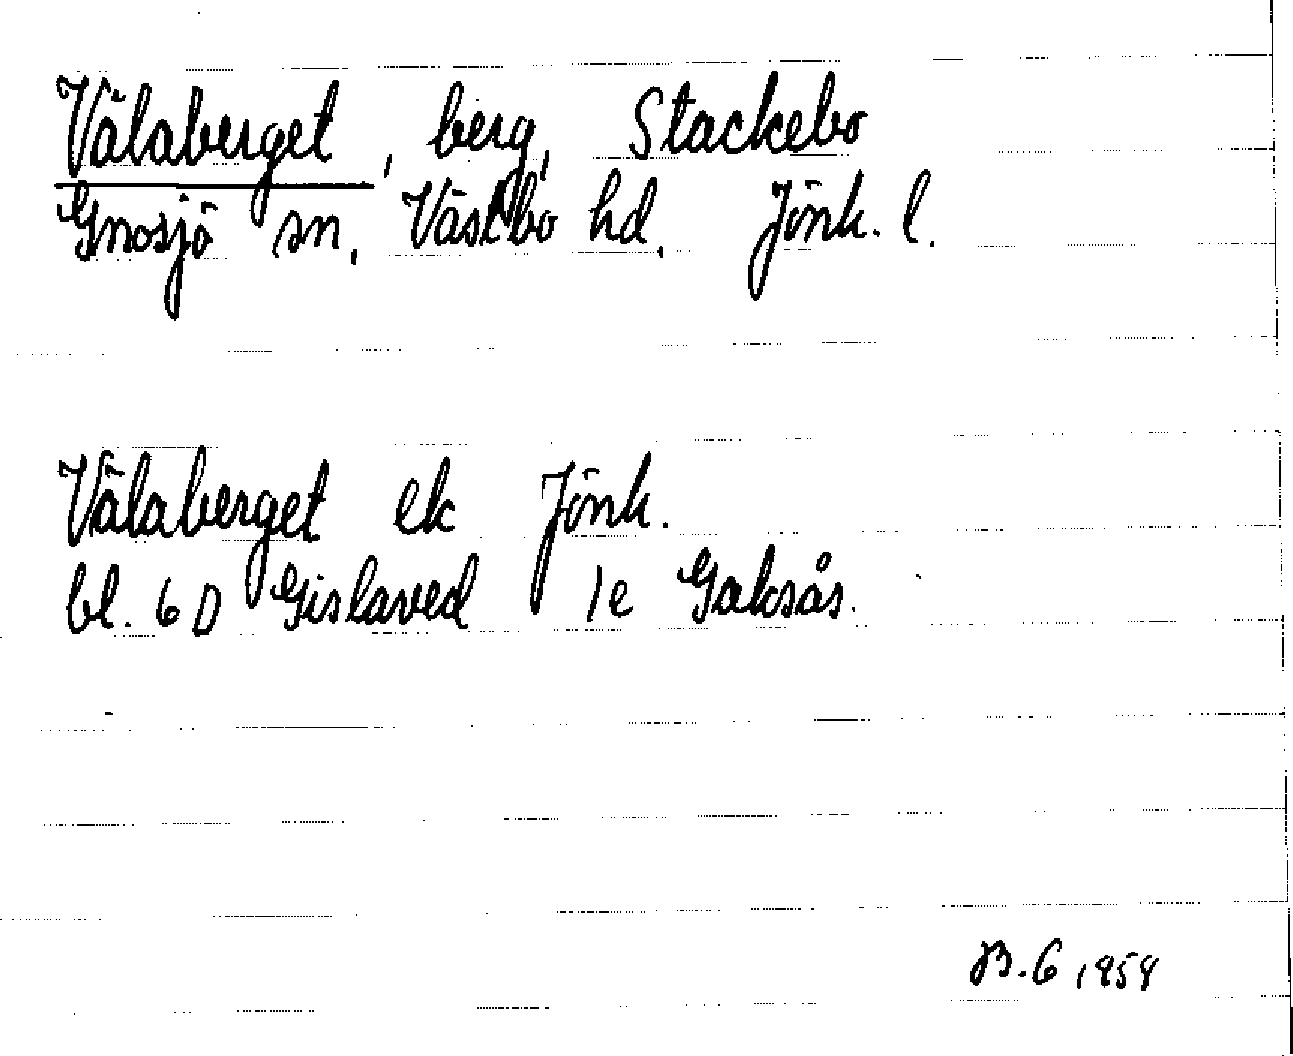 Välaberget, berg, Stackebo
Gnosjö sn, Västbo hd, Jönk. l.
Välaberget ek Jönk.
bl. 6 D Gislaved 1e Gaksås.
B.G 1959